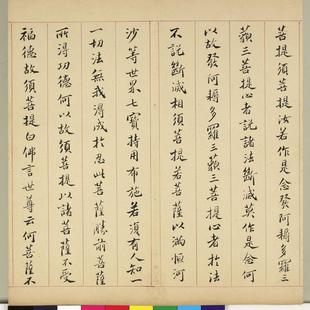 菩提須菩提汝若作是念發阿耨多羅三
藐三菩提心者説諸法斷滅莫作是念何
以故發阿耨多羅三藐三菩提心者於法
不説斷滅相須菩提若菩薩以滿恒河
沙等世界七寶持用布施若復有人知一
切法無我得成於忍此菩薩勝前菩薩
所得功德何以故須菩提以諸菩薩不受
福德故須菩提白佛言世尊云何菩薩不